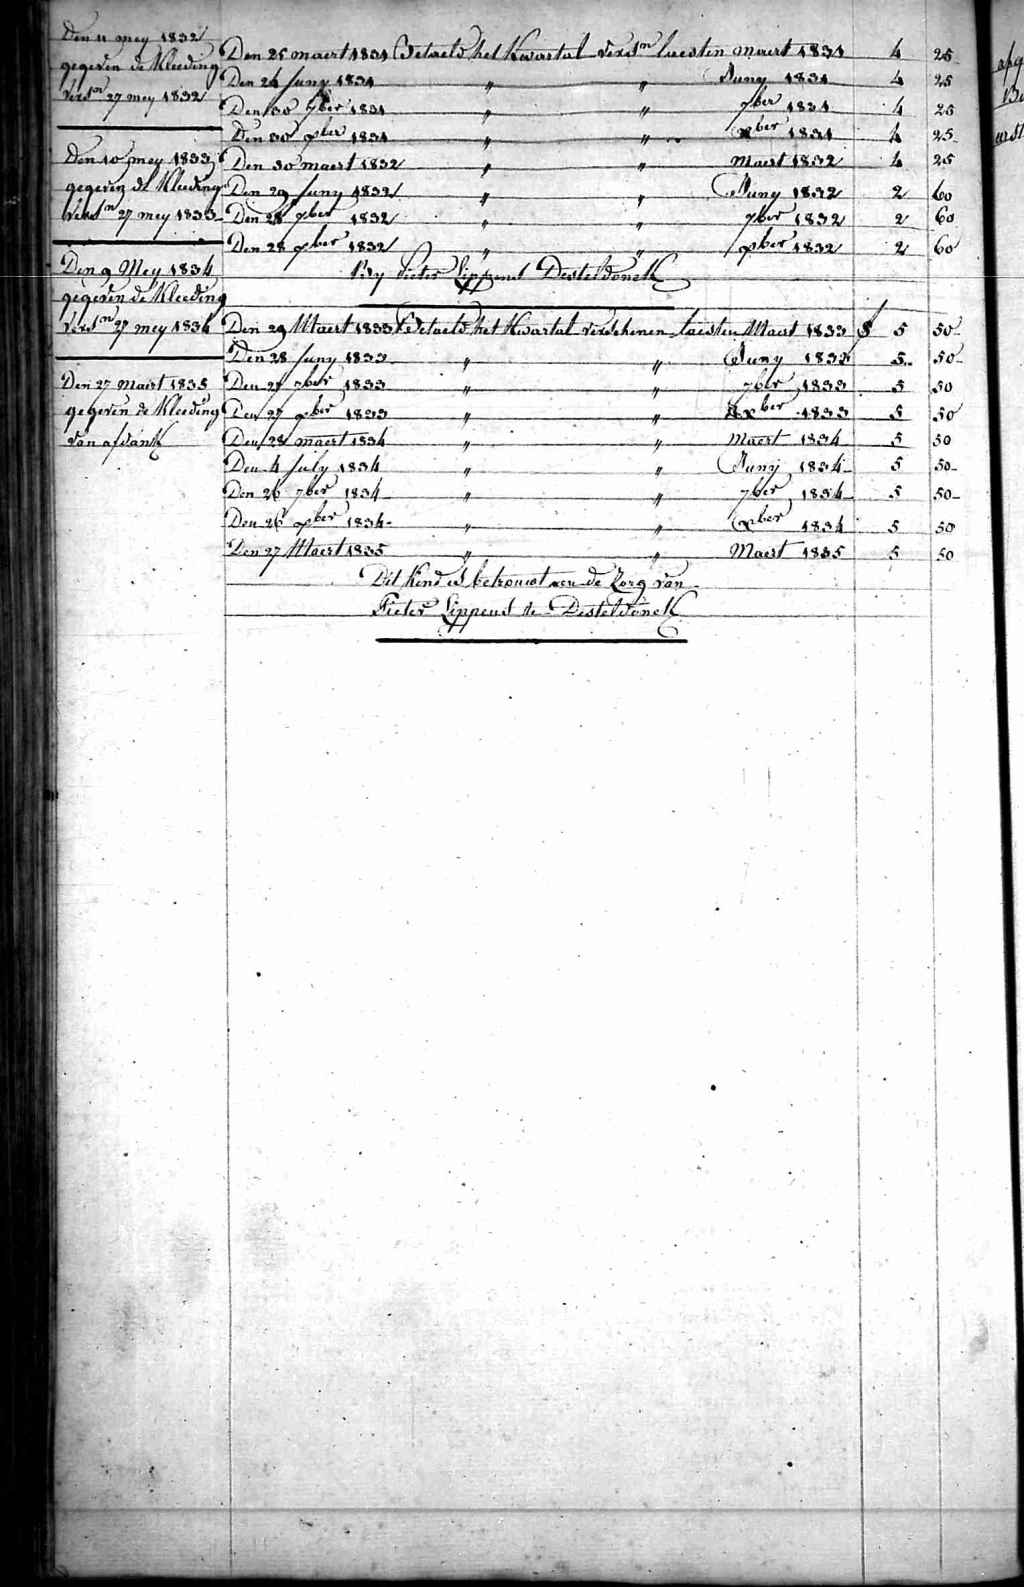 Den 11 mey 1832
gegeven de Kleeding
versn 27 mey 1832
Den 10 mey 1833
gegeven de Kleeding
versn 27 mey 1833
Den 9 Mey 1834
gegeven de Kleeding
versn 27 mey 1834
Den 27 Maert 1835
gegeven de Kleeding
van afdank
Den 25 maert 1831 Betaeld het Kwartael versn laesten maert 1831 4 25
Den 24 Juny 1831 " " Juny 1831 4 25
Den 30 7ber 1831 " " 7ber 1831 4 25
Den 30 xber 1831 " " xber 1831 4 25
Den 30 maert 1832 " " Maert 1832 4 25
Den 29 Juny 1832 " " Juny 1832 2 60
Den 28 7ber 1832 " " 7ber 1832 2 60
Den 28 xber 1832 " " xber 1832 2 60
By Pieter Lippens Desteldonck
Den 29 Maert 1833 Betaeld het Kwartal verschenen laesten Maert 1833 5 50
Den 28 Juny 1833 " " Juny 1833 5 50
Den 27 7ber 1833 " " 7ber 1833 5 50
Den 27 xber 1833 " " xber 1833 5 50
Den 28 maert 1834 " " Maert 1834 5 50
Den 4 July 1834 " " Junij 1834 5 50
Den 26 7ber 1834 " " 7ber 1834 5 50
Den 26 xber 1834 " " xber 1834 5 50
Den 27 Maert 1835 " " Maert 1835 5 50
Dit Kind is betrouwt aen de Zorg van
Pieter Lippens te Desteldonck